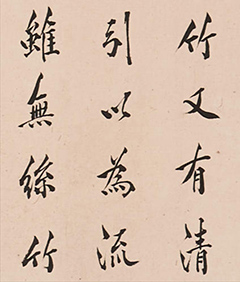 竹又有清
引以為流
雖無絲竹